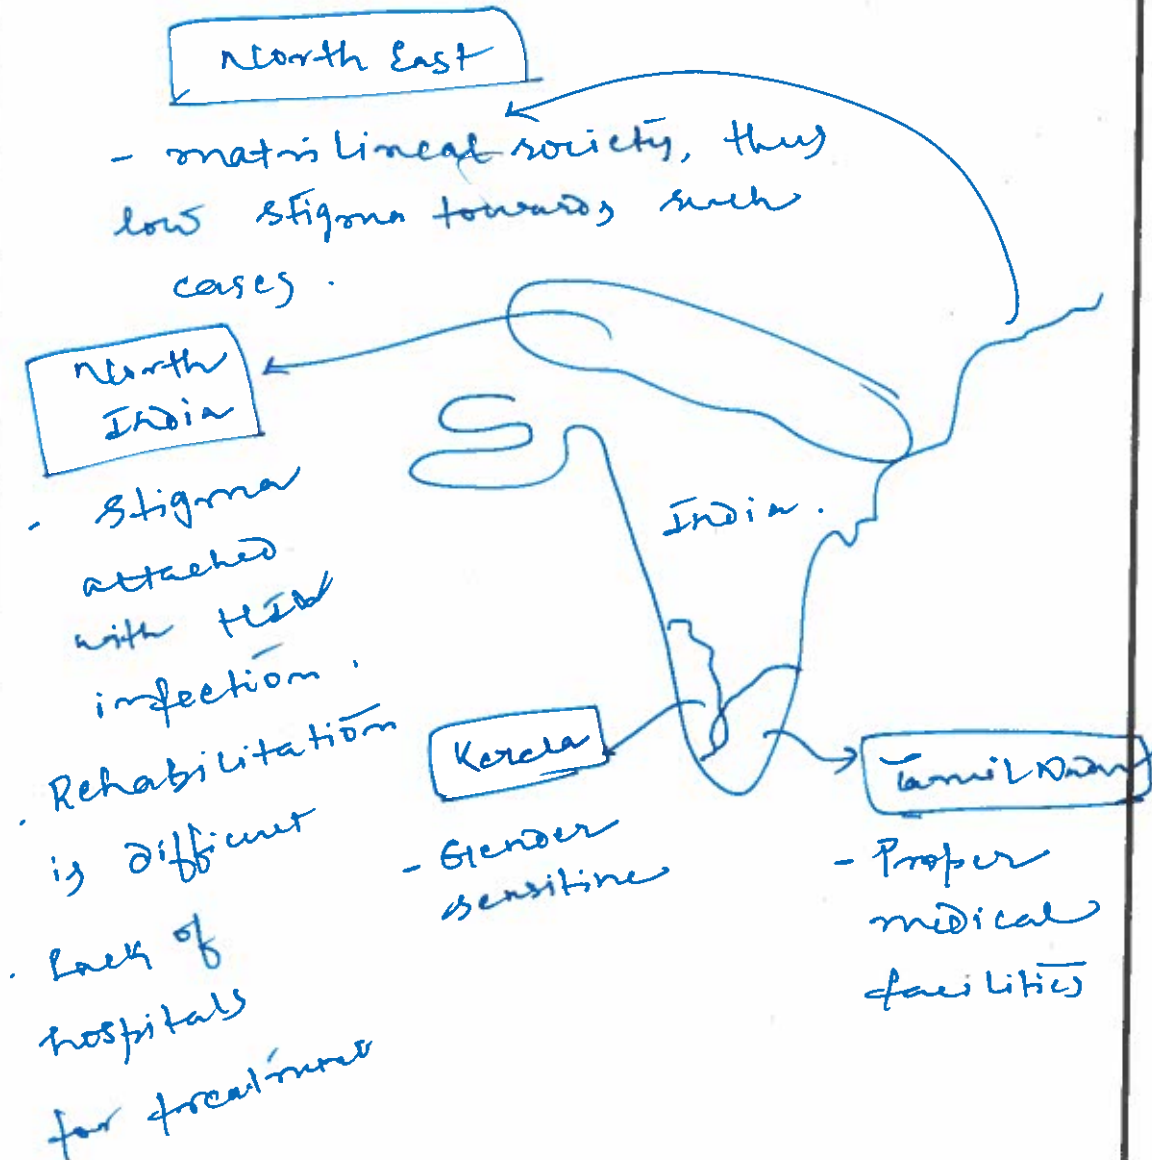 North East
- matrilineal society, thus
low stigma towards such
cases.
North
India
- Stigma
attached
with HIV
infection.
. Rehabilitation
is difficult
. Lack of
hospitals
for treatment
India.
Kerala
- Gender
sensitive
Tamil Nadu
- Proper
medical
facilities